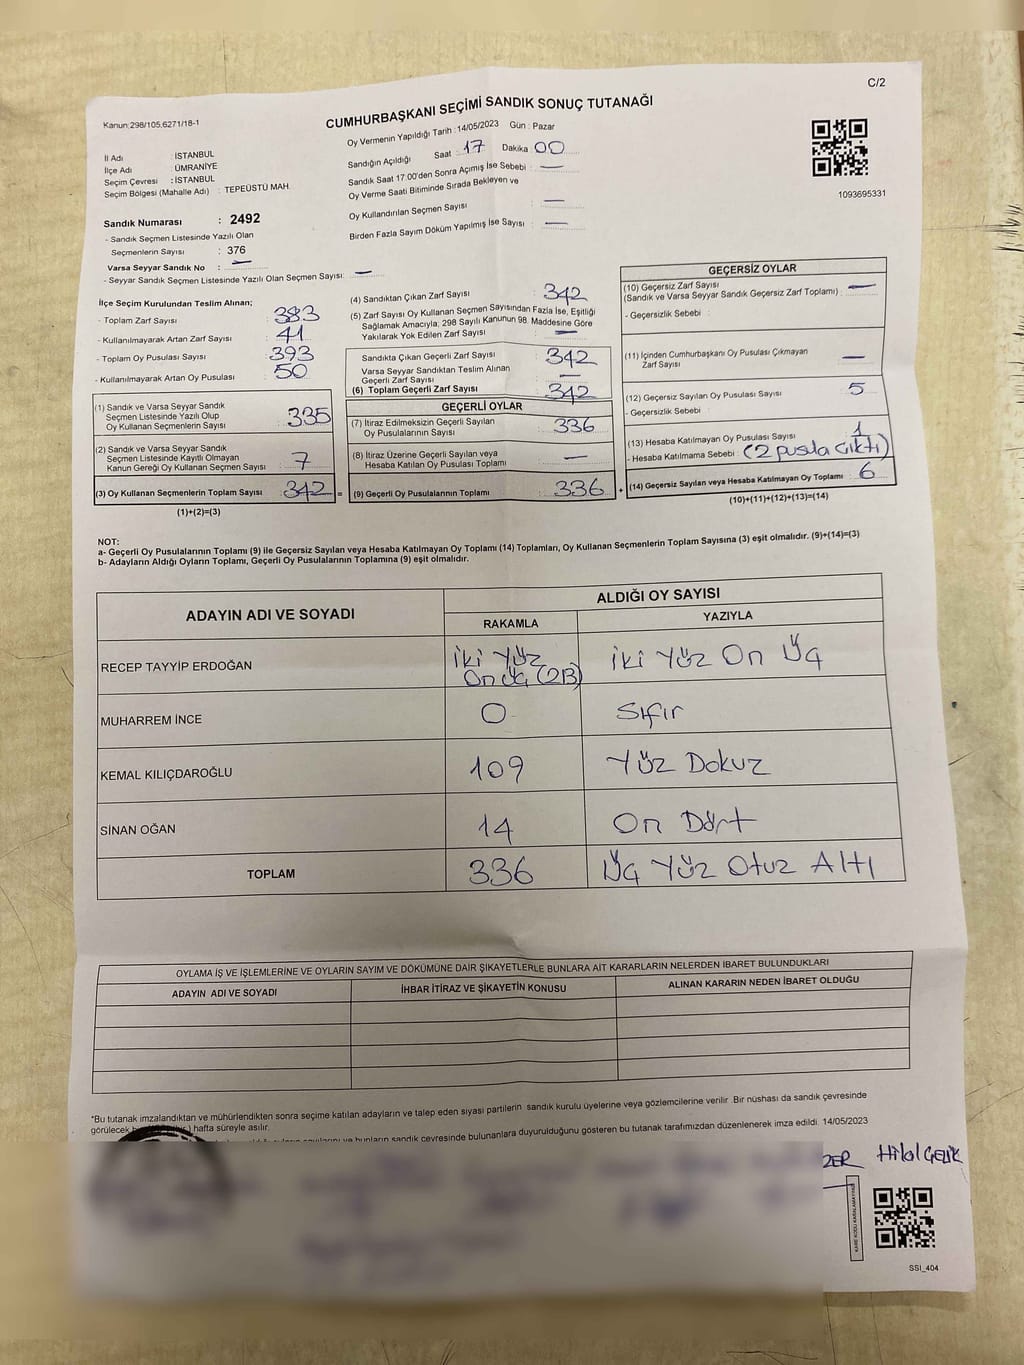 C/2
Kanun:298/105.6271/18-1
CUMHURBAŞKANI SEÇİMİ SANDIK SONUÇ TUTANAĞI
İl Adı : İSTANBUL
İlçe Adı : ÜMRANİYE
Seçim Çevresi : İSTANBUL
Seçim Bölgesi (Mahalle Adı) : TEPEÜSTÜ MAH.
Oy Vermenin Yapıldığı Tarih : 14/05/2023 Gün : Pazar
Sandığın Açıldığı Saat : 17 Dakika 00
Sandık Saat 17.00'den Sonra Açımış İse Sebebi : —
Oy Verme Saati Bitiminde Sırada Bekleyen ve
Oy Kullandırılan Seçmen Sayısı —
Birden Fazla Sayım Döküm Yapılmış İse Sayısı : —
1093695331
Sandık Numarası : 2492
- Sandık Seçmen Listesinde Yazılı Olan
Seçmenlerin Sayısı : 376
Varsa Seyyar Sandık No : —
- Seyyar Sandık Seçmen Listesinde Yazılı Olan Seçmen Sayısı: —
İlçe Seçim Kurulundan Teslim Alınan;
- Toplam Zarf Sayısı : 383
- Kullanılmayarak Artan Zarf Sayısı : 41
- Toplam Oy Pusulası Sayısı : 393
- Kullanılmayarak Artan Oy Pusulası : 50
(1) Sandık ve Varsa Seyyar Sandık
Seçmen Listesinde Yazılı Olup
Oy Kullanan Seçmenlerin Sayısı : 335
(2) Sandık ve Varsa Seyyar Sandık
Seçmen Listesinde Kayıtlı Olmayan
Kanun Gereği Oy Kullanan Seçmen Sayısı : 7
(3) Oy Kullanan Seçmenlerin Toplam Sayısı : 342 =
(1)+(2)=(3)
(4) Sandıktan Çıkan Zarf Sayısı : 342
(5) Zarf Sayısı Oy Kullanan Seçmen Sayısından Fazla İse, Eşitliği
Sağlamak Amacıyla; 298 Sayılı Kanunun 98. Maddesine Göre
Yakılarak Yok Edilen Zarf Sayısı : —
Sandıkta Çıkan Geçerli Zarf Sayısı : 342
Varsa Seyyar Sandıktan Teslim Alınan
Geçerli Zarf Sayısı : —
(6) Toplam Geçerli Zarf Sayısı : 342
GEÇERLİ OYLAR
(7) İtiraz Edilmeksizin Geçerli Sayılan
Oy Pusulalarının Sayısı : 336
(8) İtiraz Üzerine Geçerli Sayılan veya
Hesaba Katılan Oy Pusulası Toplamı : —
(9) Geçerli Oy Pusulalarının Toplamı : 336 +
GEÇERSİZ OYLAR
(10) Geçersiz Zarf Sayısı
(Sandık ve Varsa Seyyar Sandık Geçersiz Zarf Toplamı) : —
- Geçersizlik Sebebi :
(11) İçinden Cumhurbaşkanı Oy Pusulası Çıkmayan
Zarf Sayısı —
(12) Geçersiz Sayılan Oy Pusulası Sayısı : 5
- Geçersizlik Sebebi :
(13) Hesaba Katılmayan Oy Pusulası Sayısı : 1
- Hesaba Katılmama Sebebi : (2 pusula çıktı)
(14) Geçersiz Sayılan veya Hesaba Katılmayan Oy Toplamı : 6
(10)+(11)+(12)+(13)=(14)
NOT:
a- Geçerli Oy Pusulalarının Toplamı (9) ile Geçersiz Sayılan veya Hesaba Katılmayan Oy Toplamı (14) Toplamları, Oy Kullanan Seçmenlerin Toplam Sayısına (3) eşit olmalıdır. (9)+(14)=(3)
b- Adayların Aldığı Oyların Toplamı, Geçerli Oy Pusulalarının Toplamına (9) eşit olmalıdır.
ADAYIN ADI VE SOYADI
ALDIĞI OY SAYISI
RAKAMLA YAZIYLA
RECEP TAYYİP ERDOĞAN İki Yüz On Üç (213) İki Yüz On Üç
MUHARREM İNCE 0 Sıfır
KEMAL KILIÇDAROĞLU 109 Yüz Dokuz
SİNAN OĞAN 14 On Dört
TOPLAM 336 Üç Yüz Otuz Altı
OYLAMA İŞ VE İŞLEMLERİNE VE OYLARIN SAYIM VE DÖKÜMÜNE DAİR ŞİKAYETLERLE BUNLARA AİT KARARLARIN NELERDEN İBARET BULUNDUKLARI
ADAYIN ADI VE SOYADI İHBAR İTİRAZ VE ŞİKAYETİN KONUSU ALINAN KARARIN NEDEN İBARET OLDUĞU
*Bu tutanak imzalandıktan ve mühürlendikten sonra seçime katılan adayların ve talep eden siyasi partilerin sandık kurulu üyelerine veya gözlemcilerine verilir. Bir nüshası da sandık çevresinde
görülecek hafta süreyle asılır.
ve bunların sandık çevresinde bulunanlara duyurulduğunu gösteren bu tutanak tarafımızdan düzenlenerek imza edildi. 14/05/2023
Hilal ÇELİK
SSI_404